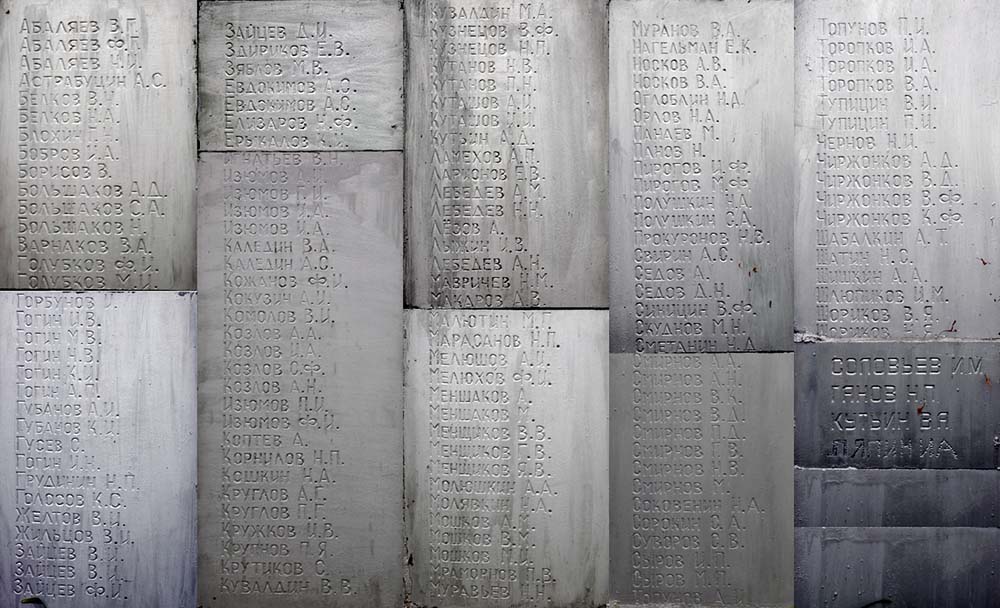 АБАЛЯЕВ В.Г.
АБАЛЯЕВ Ф.Г.
АБАЛЯЕВ Н.И.
АСТРАБУЦИН А.С.
БЕЛКОВ В.Н.
БЕЛКОВ Н.А.
БЛОХИН Г.Н.
БОБРОВ И.А.
БОРИСОВ В.
БОЛЬШАКОВ А.Д.
БОЛЬШАКОВ С.А.
БОЛЬШАКОВ Н.
ВАРНАКОВ В.А.
ГОЛУБКОВ Ф.И.
ГОЛУБКОВ М.И.
ГОРБУНОВ И.
ГОГИН И.В.
ГОГИН М.В.
ГОГИН Н.В.
ГОГИН К.И.
ГОГИН А.П.
ГУБАНОВ А.И.
ГУБАНОВ К.И.
ГУСЕВ С.
ГОГИН И.Н.
ГРУДИНИН Н.П.
ГОЛОСОВ К.С.
ЖЕЛТОВ В.И.
ЖИЛЬЦОВ В.И.
ЗАЙЦЕВ В.И.
ЗАЙЦЕВ В.И.
ЗАЙЦЕВ Ф.И.
ЗАЙЦЕВ Д.И.
ЗДИРИКОВ Е.З.
ЗЯБЛОВ М.В.
ЕВДОКИМОВ А.С.
ЕВДОКИМОВ А.С.
ЕЛИЗАРОВ Н.Ф.
ЕРЫКАЛОВ К.И.
ИГНАТЬЕВ В.Н.
ИЗЮМОВ А.И.
ИЗЮМОВ Г.И.
ИЗЮМОВ И.А.
ИЗЮМОВ И.А.
КАЛЕДИН В.А.
КАЛЕДИН А.С.
КОЖАНОВ Ф.И.
КОКУЗИН А.И.
КОМОЛОВ В.И.
КОЗЛОВ А.А.
КОЗЛОВ И.А.
КОЗЛОВ С.Ф.
КОЗЛОВ А.Н.
ИЗЮМОВ П.И.
ИЗЮМОВ Ф.И.
КОПТЕВ А.
КОРНИЛОВ Н.П.
КОШКИН Н.А.
КРУГЛОВ А.Г.
КРУГЛОВ П.Г.
КРУЖКОВ И.В.
КРУПНОВ П.Я.
КРУТИКОВ С.
КУВАЛДИН В.В.
КУВАЛДИН М.А.
КУЗНЕЦОВ В.Ф.
КУЗНЕЦОВ Н.П.
КУТАНОВ Н.В.
КУТАНОВ П.Н.
КУТАШОВ А.И.
КУТАШОВ И.И.
КУТЬИН А.Д.
ЛАМЕХОВ А.П.
ЛАРИОНОВ Е.В.
ЛЕБЕДЕВ А.М.
ЛЕБЕДЕВ Н.Н.
ЛЁСОВ А.
ЛЫЖИН И.В.
ЛЕБЕДЕВ А.Н.
МАВРИЧЕВ Н.М.
МАКАРОВ А.В.
МАЛЮТИН М.Г.
МАРАСАНОВ Н.П.
МЕЛЮШОВ А.И.
МЕЛЮХОВ Ф.И.
МЕНЩАКОВ А.
МЕНЩАКОВ М.
МЕНЩИКОВ В.В.
МЕНЩИКОВ Г.В.
МЕНЩИКОВ Я.В.
МОЛЮШКИН А.А.
МОЛЯВКИН Н.А.
МОШКОВ А.М.
МОШКОВ В.М.
МОШКОВ М.И.
МРАМОРНОВ П.В.
МУРАВЬЕВ П.Н.
МУРАНОВ В.А.
НАГЕЛЬМАН Е.К.
НОСКОВ А.В.
НОСКОВ В.А.
ОГЛОБЛИН Н.А.
ОРЛОВ Н.А.
ПАНАЕВ М.
ПАНОВ Н.
ПИРОГОВ И.Ф.
ПИРОГОВ М.Ф.
ПОЛУШКИН Н.А.
ПОЛУШКИН С.А.
ПРОКУРОНОВ Н.В.
СВИРИН А.С.
СЕДОВ А.
СЕДОВ Д.Н.
СИНИЦИН В.Ф.
СКУДНОВ М.Н.
СМЕТАНИН Н.А.
СМИРНОВ А.
СМИРНОВ А.Н.
СМИРНОВ В.К.
СМИРНОВ В.Д.
СМИРНОВ П.Д.
СМИРНОВ Г.В.
СМИРНОВ Н.В.
СМИРНОВ М.
СОКОВЕНИН Н.А.
СОРОКИН С.А.
СУВОРОВ С.В.
СЫРОВ И.П.
СЫРОВ М.П.
ТОПУНОВ А.
ТОПУНОВ П.И.
ТОРОПКОВ И.А.
ТОРОПКОВ И.А.
ТОРОПКОВ В.А.
ТУПИЦИН В.И.
ТУПИЦИН П.И.
ЧЕРНОВ Н.И.
ЧИРЖОНКОВ А.Д.
ЧИРЖОНКОВ В.Д.
ЧИРЖОНКОВ В.Ф.
ЧИРЖОНКОВ К.Ф.
ШАБАЛКИН А.Т.
ШАТИН Н.С.
ШИШКИН А.А.
ШЛЮПИКОВ И.М.
ШОРИКОВ В.Я.
ШОРИКОВ Н.Я.
СОЛОВЬЕВ И.М.
ГАНОВ Н.П.
КУТЬИН В.А.
ЛЯПИН И.А.